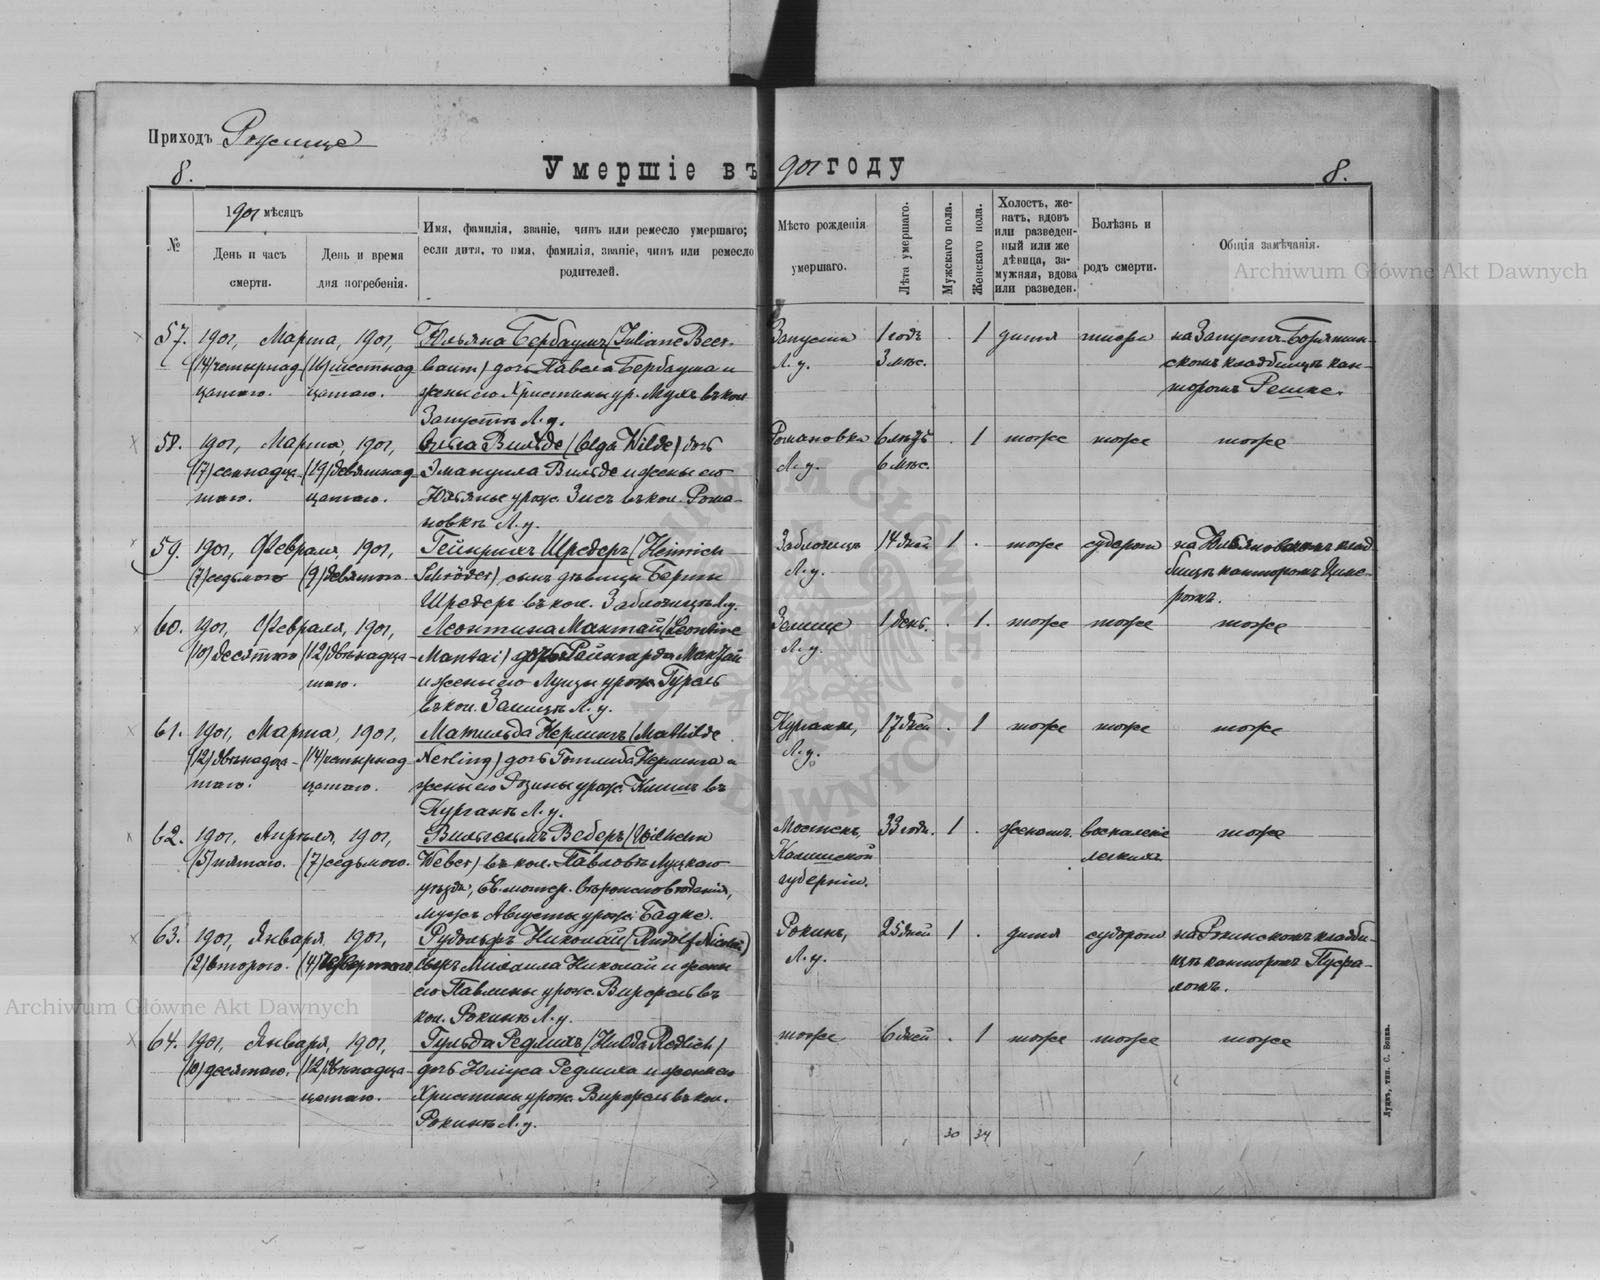 Приходъ Рожище
8.
Умершіе въ 1901 году
8.
№
1901 мѣсяцъ
День и часъ смерти.
День и время дня погребенія.
Имя, фамилія, званіе, чинъ или ремесло умершаго;
если дитя, то имя, фамилія, званіе, чинъ или ремесло
родителей.
Мѣсто рожденія
умершаго.
Лѣта умершаго.
Мужскаго пола.
Женскаго пола.
Холостъ, же-
натъ, вдовъ
или разведен-
ный или же
дѣвица, за-
мужняя, вдова
или разведен.
Болѣзнь и
родъ смерти.
Общія замѣчанія.
Archiwum Główne Akt Dawnych
57. 1901, Марта, 1901, Юльяна Бербаумъ (Juliane Beer- Запуста 1 годъ . 1 дитя на Запустъ-Борятин-
(14) четырнад- (16) шестнад- baum) дочь Павла Бербаума и Л. у. 3 мѣс. скомъ кладбищѣ кан-
цатаго. цатаго. жены его Христины ур. Мухъ въ кол. торомъ Решке.
Запустъ Л. у.
58. 1901, Марта, 1901, Ольга Вильде (Olga Wilde) дочь Романовка 6 лѣтъ . 1 тоже тоже тоже
(17) семнадца- (19) девятнад- Эмануила Вильде и жены его Л. у. 6 мѣс.
таго. цатаго. Юльяны урож. Зисъ въ кол. Рома-
новкѣ Л. у.
59. 1901, Февраля, 1901, Гейнрихъ Шредеръ (Heinrich Заблотцы 14 дней 1 . тоже судороги на Юльяновскомъ клад-
(7) седьмого (9) девятого Schröder) сынъ дѣвицы Берты Л. у. бищѣ канторомъ
Шредеръ въ кол. Л. у.
60. 1901, Февраля, 1901, Леонтина Мантай (Leontine 1 день. . 1. тоже тоже тоже
(10) десятаго (12) двѣнадца- Mantai) дочь Рейнгарда Мантай Л. у.
таго. и жены его Луизы урож.
въ кол. Л. у.
61. 1901, Марта, 1901, Матильда Нерлингъ (Mathilde Курганы, 17 дней . 1 тоже тоже тоже
(12) двѣнадца- (14) четырнад- Nerling) дочь Готлиба Нерлинга и Л. у.
таго. цатаго. жены его Розины урож. въ
Курганѣ Л. у.
62. 1901, Апрѣля, 1901, Вильгельмъ Веберъ (Wilhelm 33 года. 1 . женатъ воспаленіе тоже
(5) пятаго. (7) седьмого. Weber) въ кол. Павловкѣ Луцкаго Калишской легкихъ
уѣзда, Ев. лютер. вѣроисповѣданія, губерніи.
мужъ Августы урож. Бадке.
63. 1901, Января, 1901, Рудольфъ Николай (Rudolf Nicolai) Рокинъ, 25 дней 1 . дитя судороги на Рокинскомъ кладби-
(2) второго. (4) четвертаго сынъ Михаила Николай и жены Л. у. щѣ канторомъ
его Павлины урож. въ
кол. Рокинѣ Л. у.
64. 1901, Января, 1901, Гульда Редлихъ (Hulda Redlich) тоже 6 дней . 1 тоже тоже тоже
(10) десятаго. (12) двѣнадца- дочь Юліуса Редлиха и жены его
цатаго. Христины урож. въ кол.
Рокинѣ Л. у.
30 34
Archiwum Główne Akt Dawnych
Луцкъ, тип. С. Бонка.